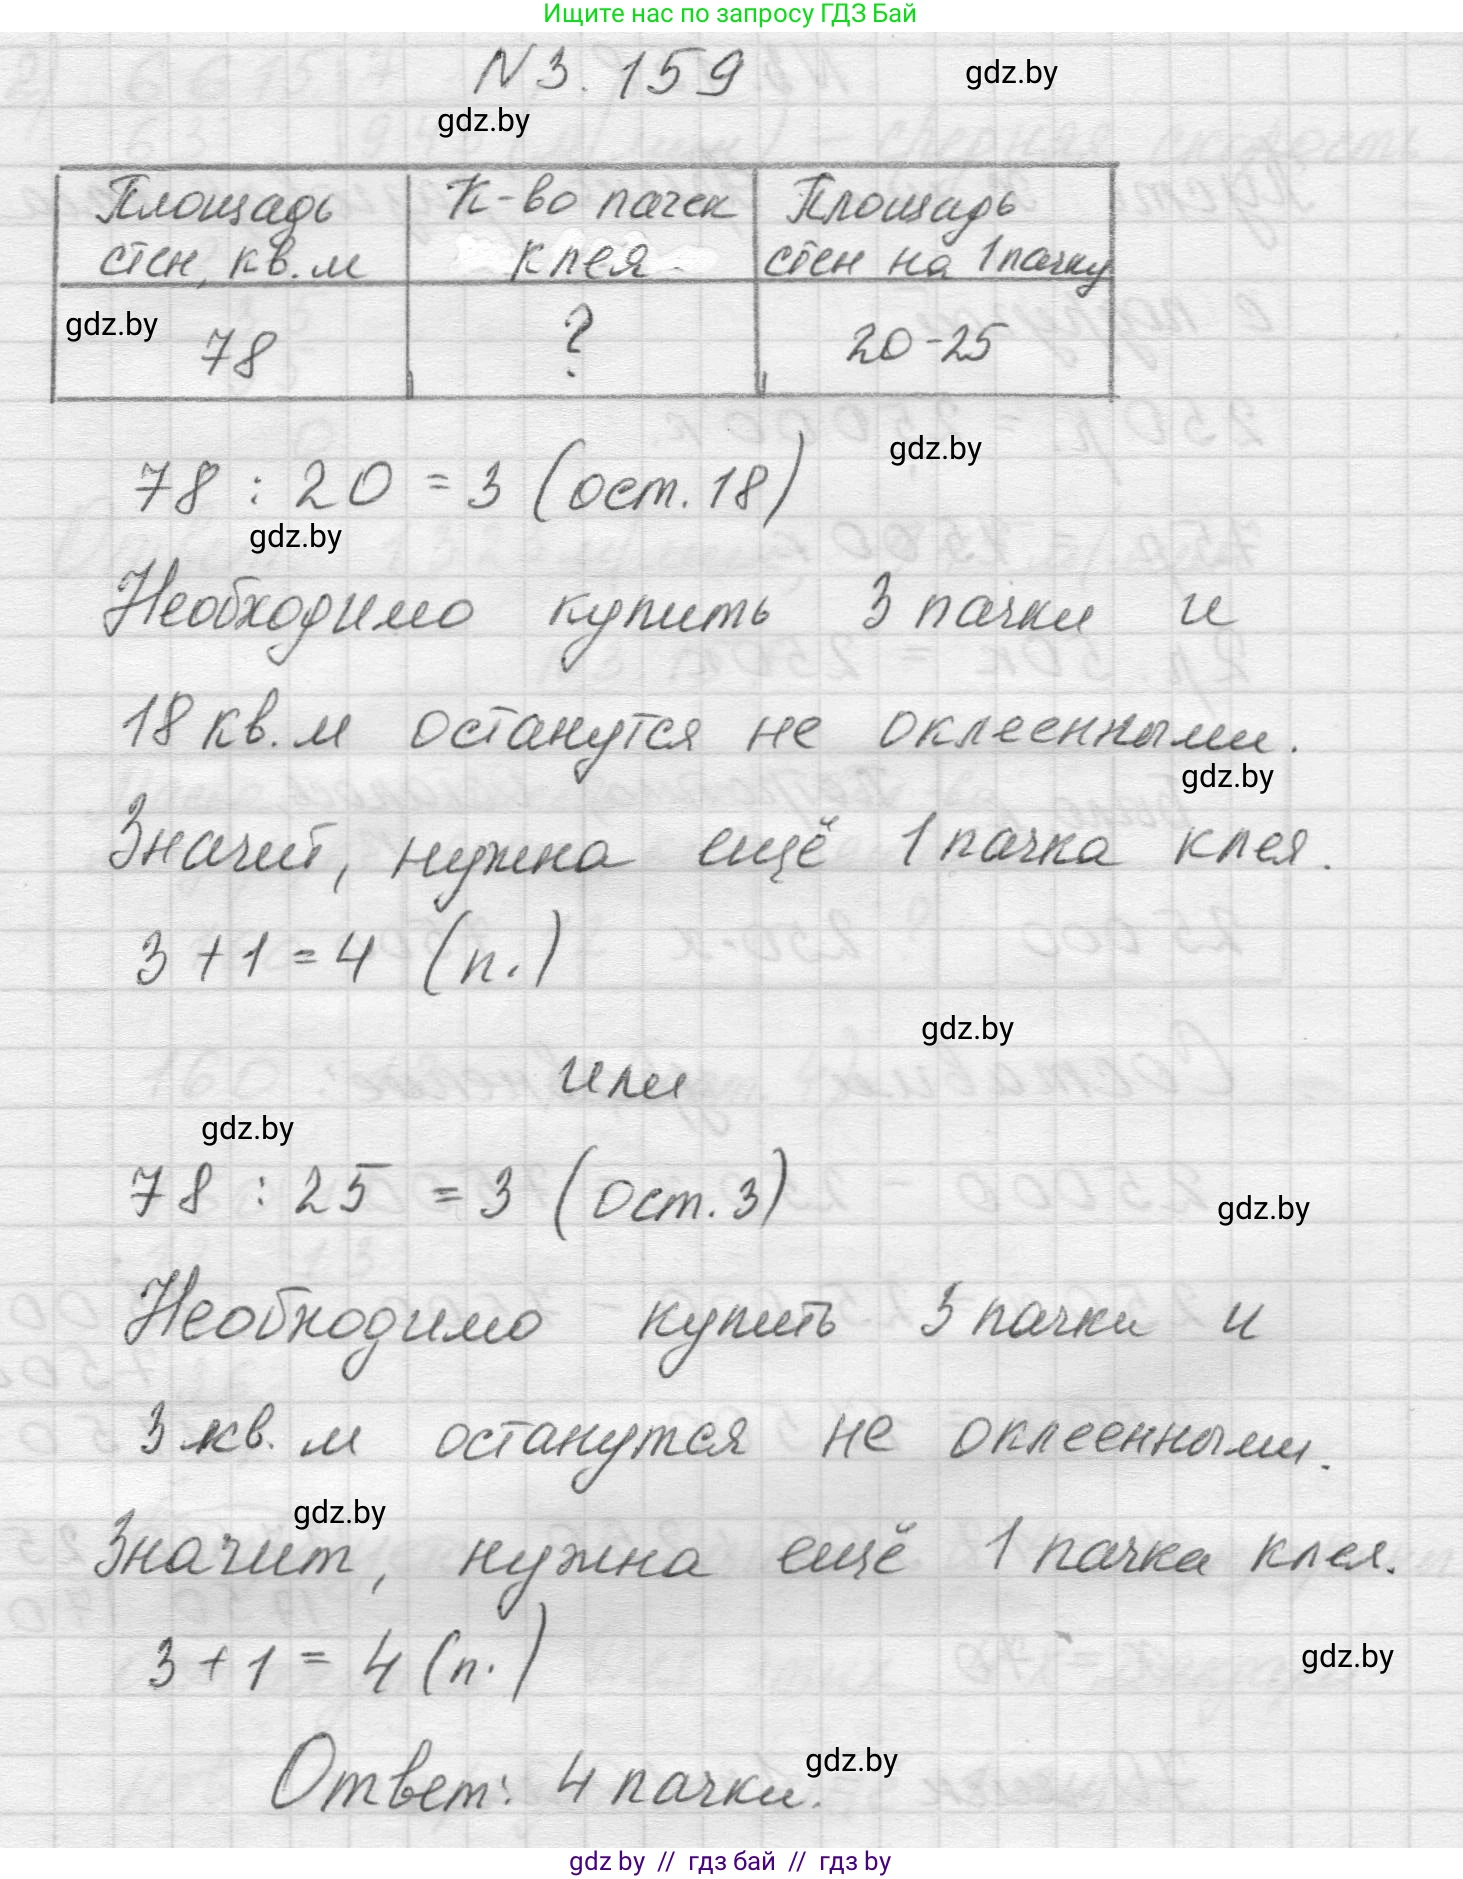 Ищите нас по запросу ГДЗ Бай
N 3. 159
gdz.by
gdz.by
Площадь стен, кв. м
К-во пачек клея
Площадь стен на 1 пачку
gdz.by
78
?
20-25
gdz.by
78 : 20 = 3 (ост. 18)
gdz.by
Необходимо купить 3 пачки и
18 кв. м останутся не оклеенными.
gdz.by
Значит, нужна ещё 1 пачка клея.
3 + 1 = 4 (п.)
gdz.by
или
gdz.by
78 : 25 = 3 (ост. 3)
gdz.by
Необходимо купить 3 пачки и
3 кв. м останутся не оклеенными.
gdz.by
Значит, нужна ещё 1 пачка клея.
3 + 1 = 4 (п.)
gdz.by
gdz.by
Ответ: 4 пачки.
gdz by // гдз бай // гдз by